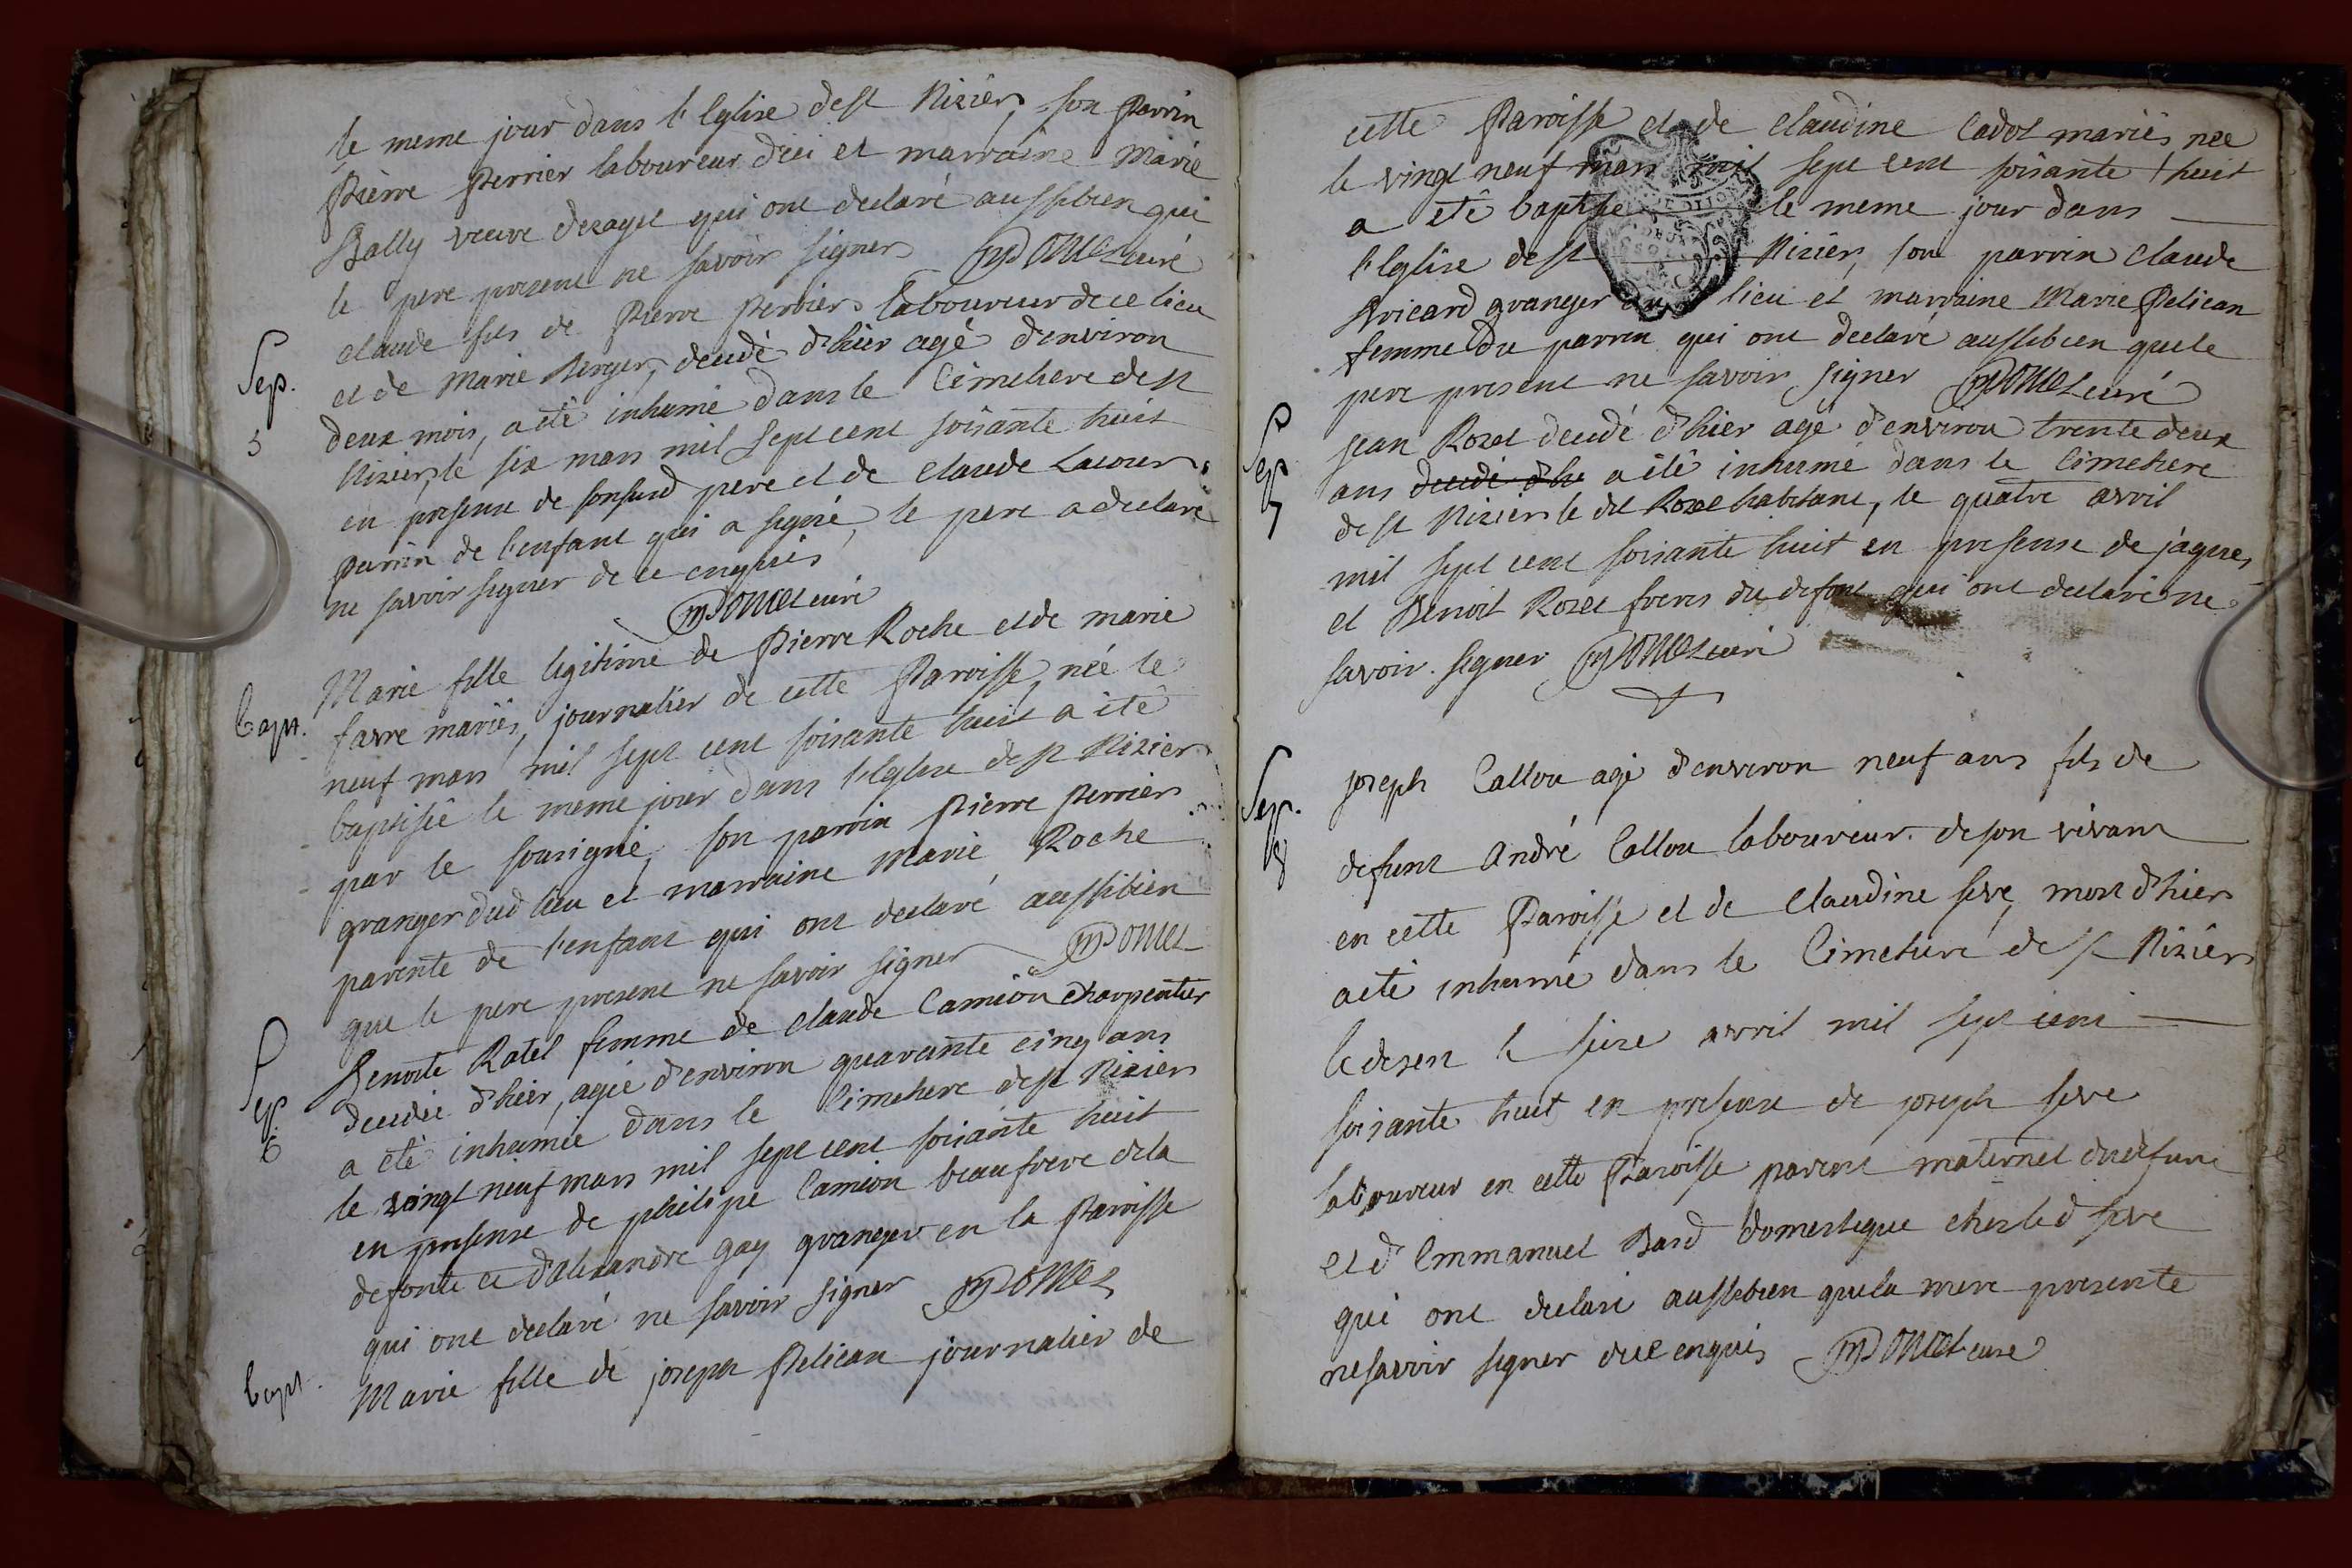 le meme jour dans l'Eglise de st Nizier, son Parrin
Pierre Perrier laboureur d'ici et marraine Marie
Bally veuve qui ont declaré aussibien que
le pere present ne savoir signer Ponet curé
Sep. 5
claude fils de Pierre Perrier laboureur de ce lieu
et de Marie Berger, decedé d'hier agé d'environ
deux mois, a été inhumé dans le Cimetiere de st
Nizier, le six mars mil sept cent soisante huit
en presense de sonsusd pere et de Claude Lacour
parrin de l'enfant qui a signé, le pere a declaré
ne savoir signer de ce enquis
Ponet curé
bapt.
Marie fille legitime de Pierre Roche et de marie
favre mariés, journalier de cette Paroisse, née le
neuf mars mil sept cent soisante huit a été
baptisée le meme jour dans l'Eglise de st Nizier
par le sousigné, son parrin pierre perrier
granger dud lieu et marraine Marie Roche
parente de l'enfant qui ont declaré aussibien
que le pere present ne savoir signer Ponet
Sep. 6
Benoite Ratel femme de claude Camion charpentier
decedée d'hier, agée d'environ quarante cinq ans
a été inhumée dans le Cimetiere de st Nizier
le vingt neuf mars mil sept cent soisante huit
en presense de philipe Camion beaufrere de la
defonte et d'alexandre gay granger en la Paroisse
qui ont declaré ne savoir signer Ponet
bapt.
Marie fille de joseph Pelican journalier de
cette Paroisse et de Claudine Cadot mariés née
le vingt neuf mars mil sept cent soisante huit
a été baptisée le meme jour dans
l'Eglise de st Nizier, son parrin Claude
Bricard granger du lieu et marraine Marie Pelican
femme du parrin qui ont declaré aussibien que le
pere present ne savoir signer Ponet curé
Sep 7
Jean Rozet decedé d'hier agé d'environ trente deux
ans decedé d'hie a été inhumé dans le Cimetiere
de st Nizier le dit Rozet habitant, le quatre avril
mil sept cent soisante huit en presense de jaques
et Benoit Rozet freres du defont qui ont declaré ne
savoir signer Ponet curé
Sep. 8
joseph Callou agé d'environ neuf ans fils de
defunt André Callou laboureur de son vivant
en cette Paroisse et de Claudine seve, mort d'hier
a été inhumé dans le Cimetiere de st Nizier
le desert le seize avril mil sept cent
soisante huit en presense de joseph seve
laboureur en cette Paroisse parent maternel du defunt
et d'Emmanuel Bard domestique chez led seve
qui ont declaré aussibien que la mere presente
ne savoir signer de ce enquis Ponet curé